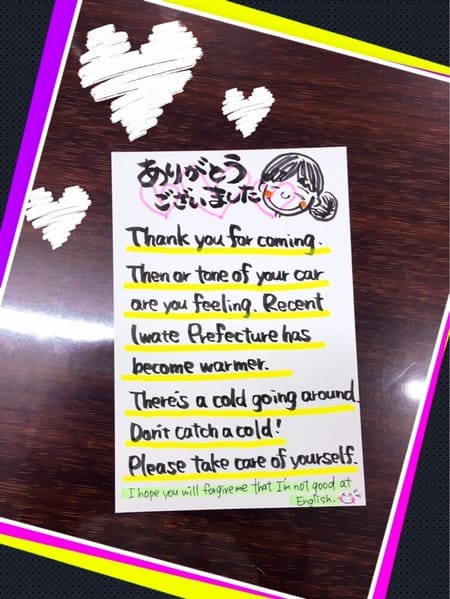 ありがとう
ございました
Thank you for coming.
Then or tone of your car
are you feeling. Recent
Iwate Prefecture has
become warmer.
There's a cold going around.
Don't catch a cold!
Please take care of yourself.
I hope you will forgive me that I'm not good at
English.